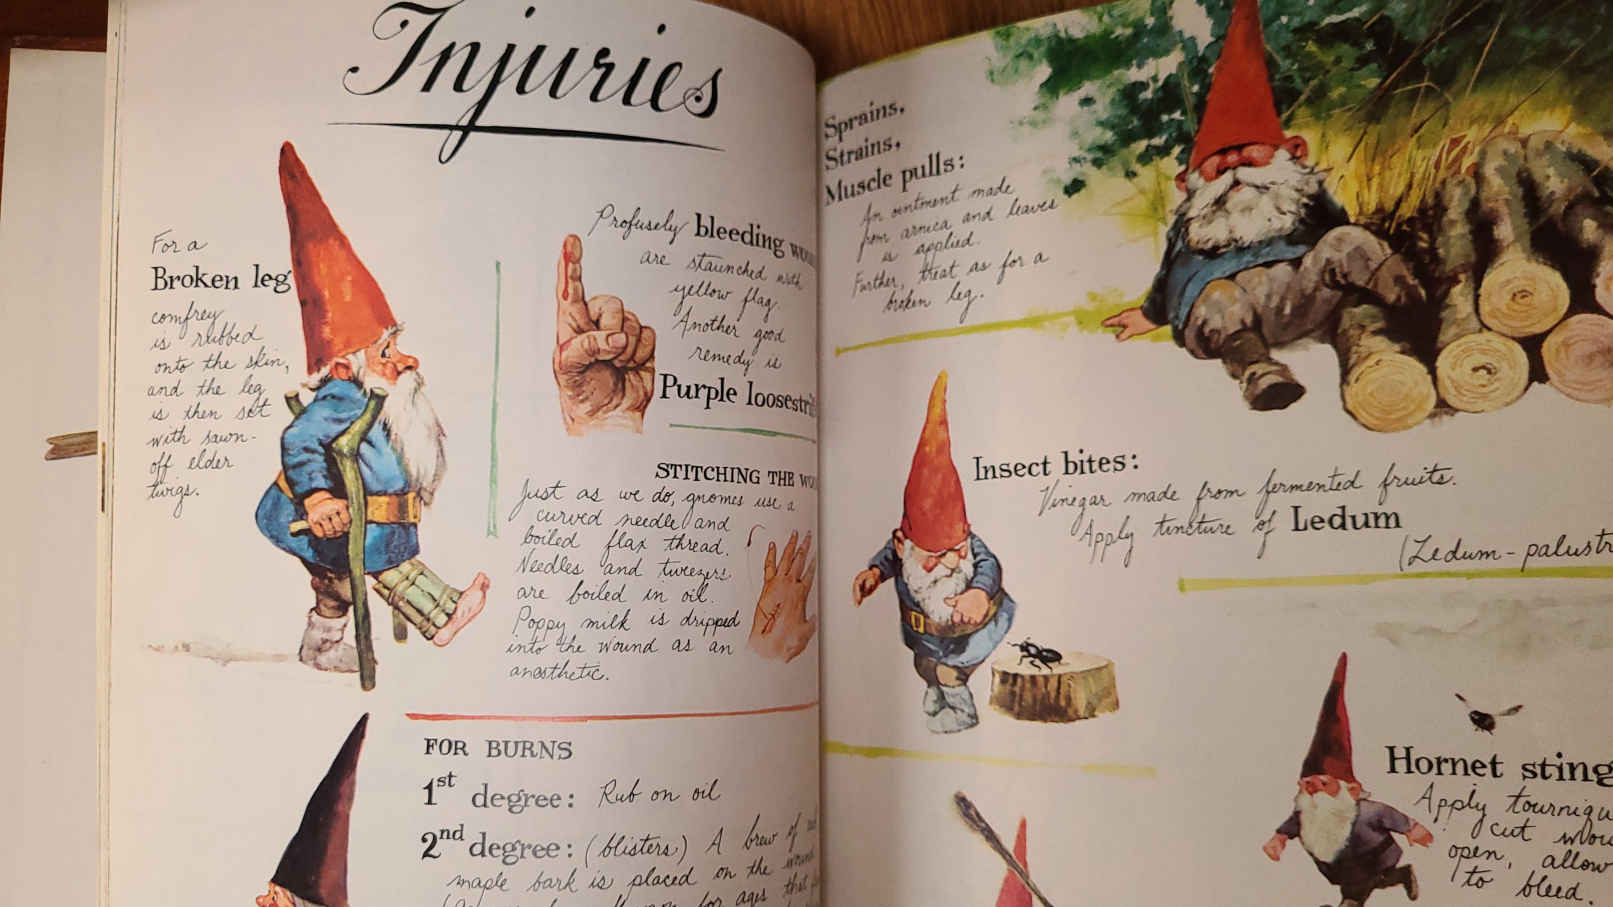 Injuries
For a
Broken leg
comfrey
is rubbed
onto the skin,
and the leg
is then set
with sawn-
off elder
twigs.
Profusely bleeding
are staunched with
yellow flag.
Another good
remedy is
Purple loosestri
STITCHING THE WO
Just as we do, gnomes use a
curved needle and
boiled flax thread.
Needles and tweezers
are boiled in oil.
Poppy milk is dripped
into the wound as an
anesthetic.
FOR BURNS
1st degree: Rub on oil
2nd degree: (blisters) A brew of
maple bark is placed on the wound
for ages that
Sprains,
Strains,
Muscle pulls:
An ointment made
from arnica and leaves
is applied.
Further, treat as for a
broken leg.
Insect bites:
Vinegar made from fermented fruits.
Apply tincture of Ledum
(Ledum-palustr
Hornet sting
Apply tourniqu
cut wou
open, allow
to bleed.